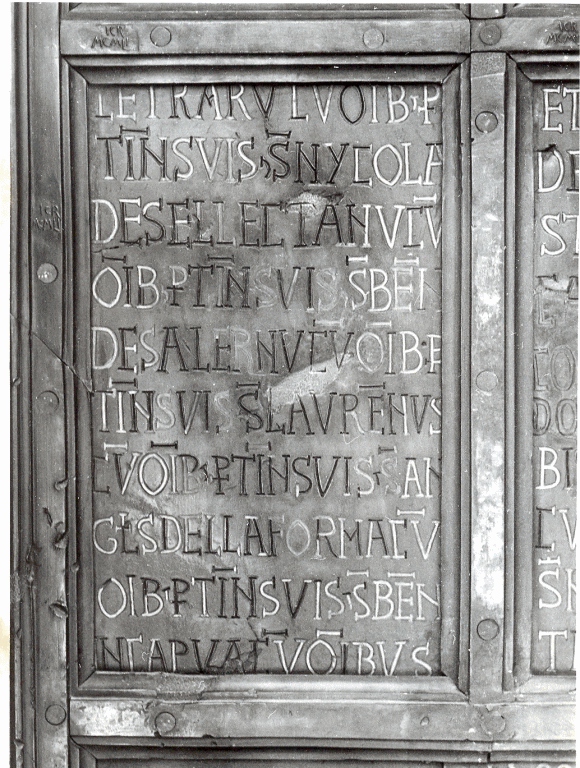 LETRARVLVOIB·P
TINSVIS·S̄NYCOLA
DESELLECTANVCV̄
ŌIB·PTIN̄SVIS·S̄BEN̄
DESALERNVCVŌIB·P
TIN̄SVIS S̄LAVRĒNVS
C̄VŌIB·PTIN̄SVIS·S̄AN
GŁSDELLAFORMAC̄V
OIB·PTIN̄SVIS·S̄BĒN
NCAPVAC̄VŌIBVS
ICR
MCMLI